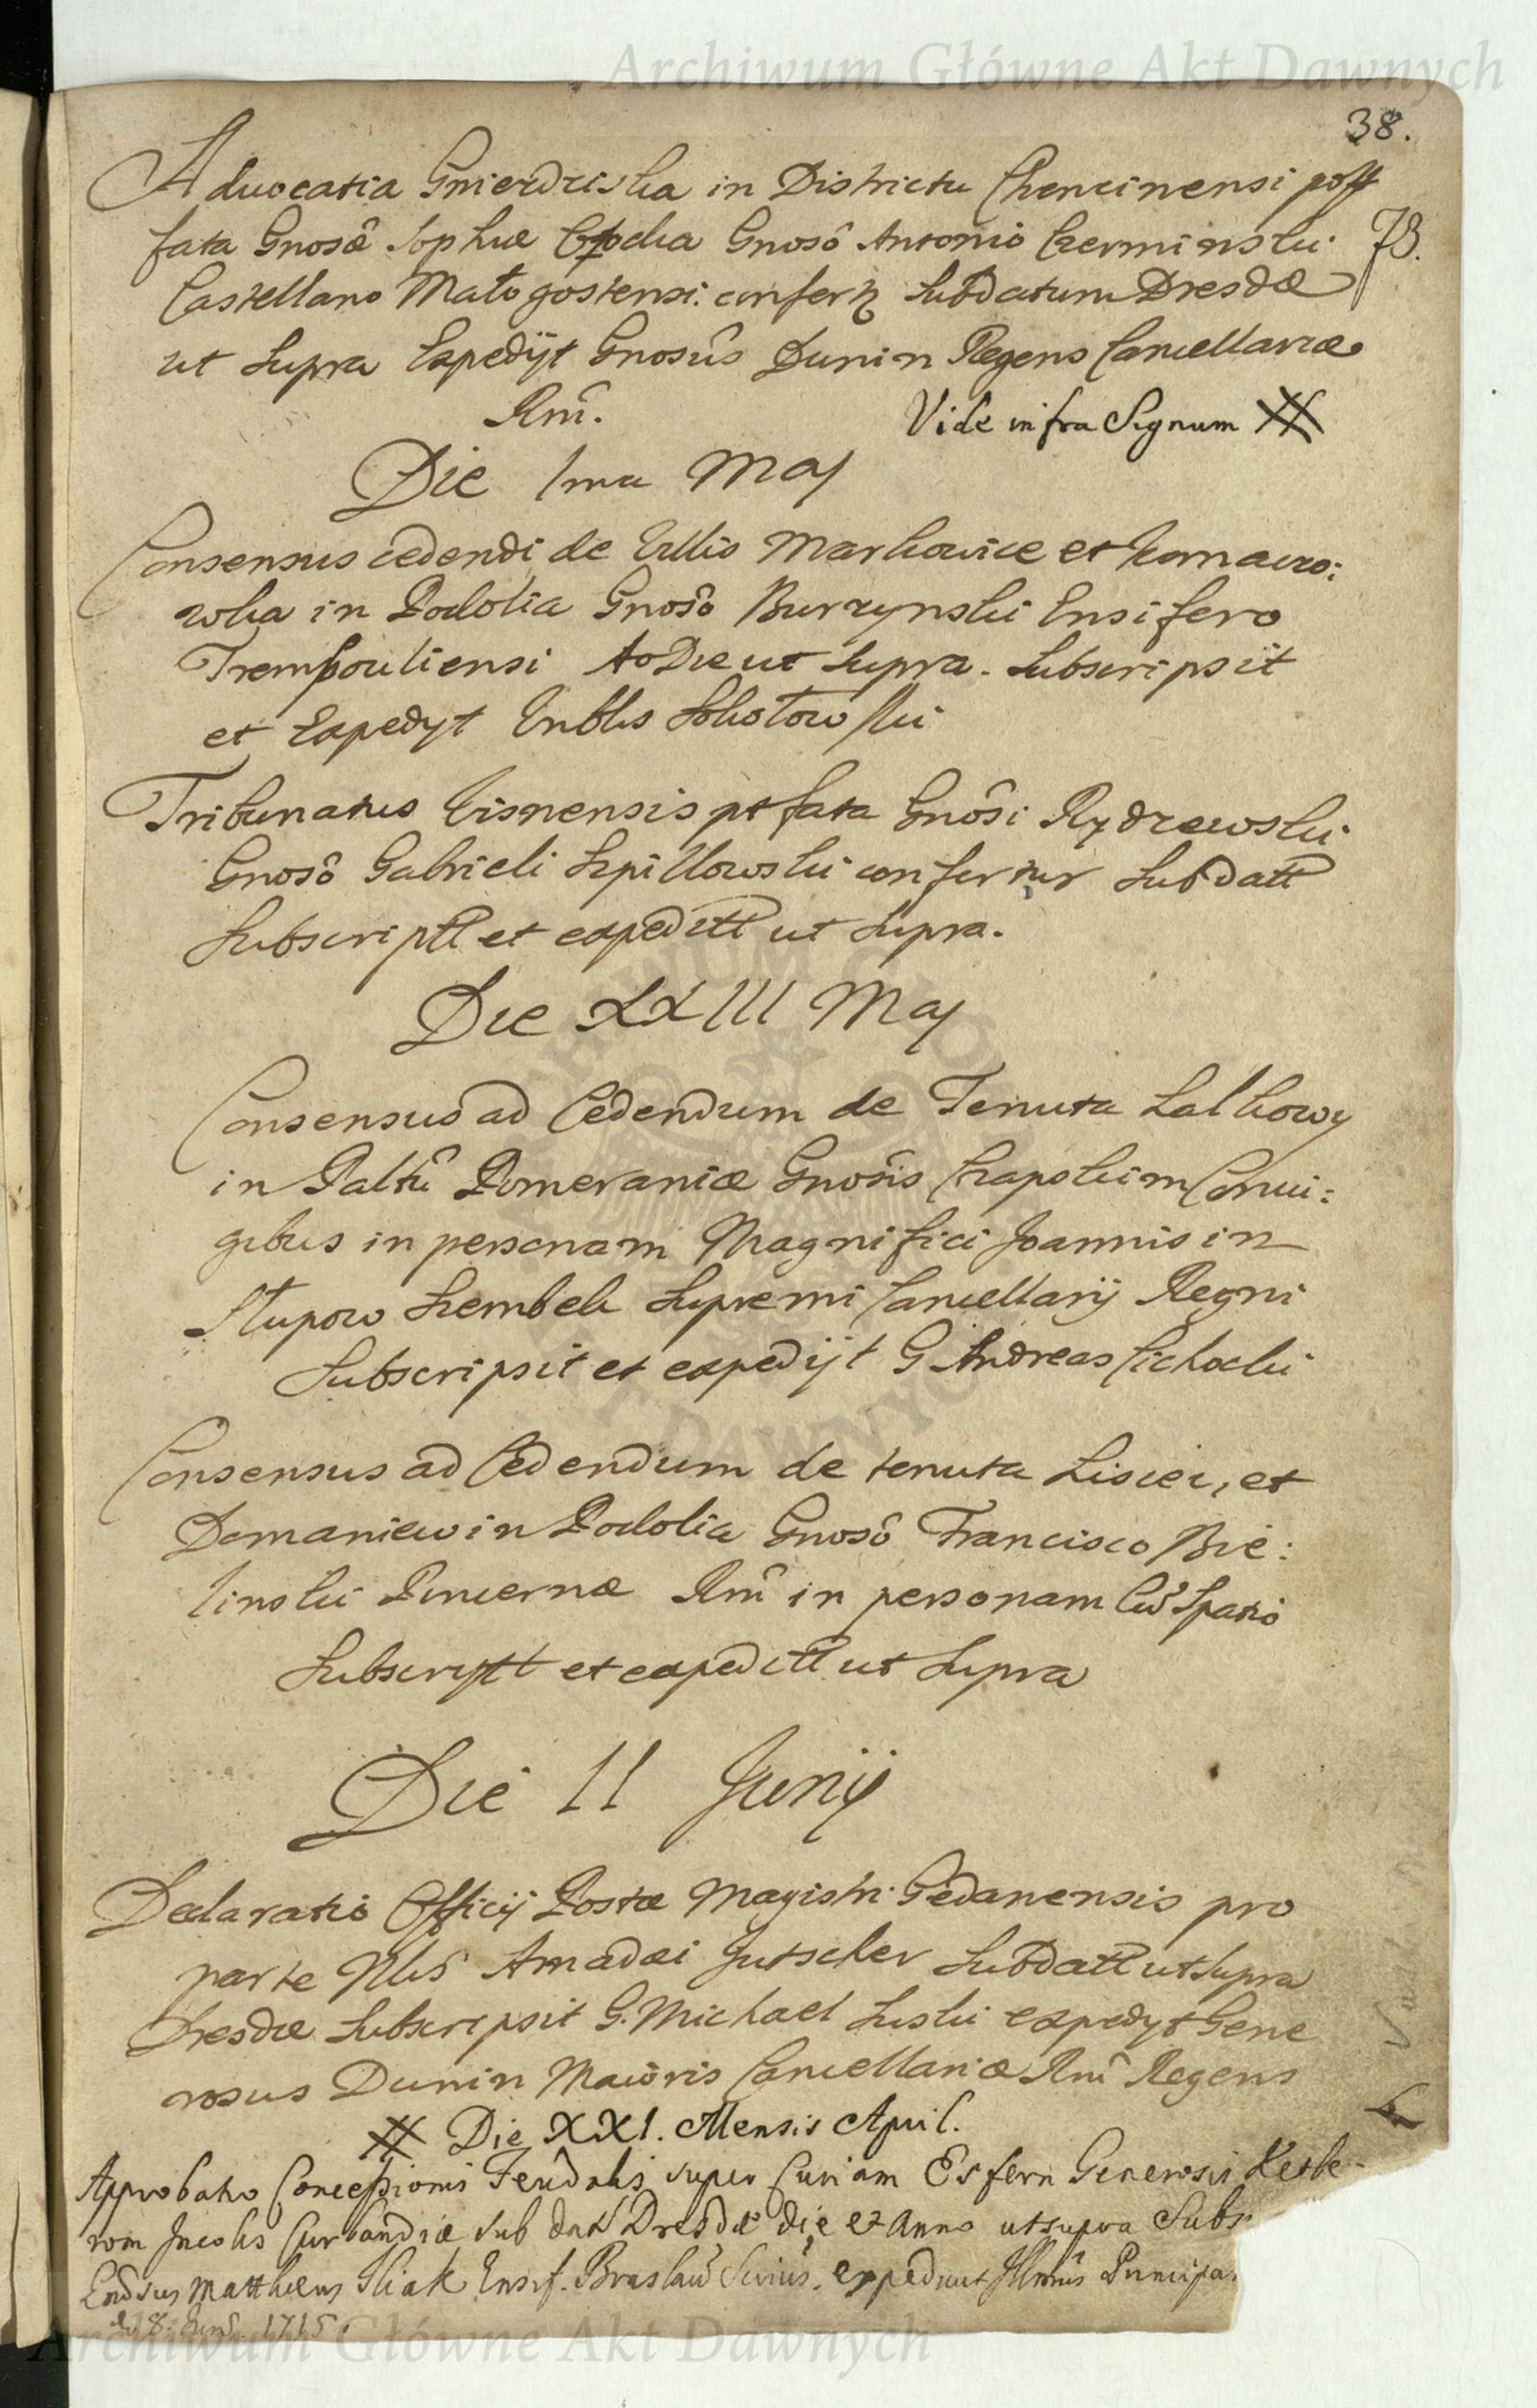 Archiwum Główne Akt Dawnych
38.
Advocatia Gnierdziska in Districtu Chencinensi post
fata Gnosæ Sophiæ Gnosô Antonio Czerminski 78.
Castellano Małogostensi confertz Subdatum Dresdæ
ut Supra Expedijt Gnosûs Dunin Regens Cancellariæ
Rnî.
Vide infra Signum #
Die 1ma Maj
Consensus cedendi de Villis Markowice et
in Podolia Gnosô Burzynski Ensifero
Trembouliensi Ao Die ut Supra. Subscripsit
et Expedyt Gnblis Sokołowski
Tribunatus Visnensis pt fata Gnôsi Rydzewski
Gnosô Gabrieli Szpillowski confertur Subdatt
Subscriptt et expeditt ut Supra.
Die XXIII Maj
Consensus ad Cedendum de Tenuta Lalkowy
in Palttû Pomeraniæ Gnosîs Czapskim Coniu:
gibus in personam Magnifici Joannis in
Słupow Szembek Supremi Cancellarij Regni
Subscripsit et expedijt G Andreas Cichocki
Consensus ad Cedendum de tenuta Lisiec, et
Domaniew in Podolia Gnosô Francisco Bie:
linski Pincernæ Rnî in personam Spatio
Subscriptt et expeditt ut Supra
Die 11 Junij
Declaratio Officij Postæ Magistri Gedanensis pro
parte Nlis Amadæi Jutscher Subdatt ut Supra
Dresdæ Subscripsit G. Michael Suski expedyt Gene
rosus Dunin Maioris Cancellariæ Rnî Regens
# Die XXI. Mensis April.
Approbatio Concessionis Feudalis super Curiam Esfern Generosis
Incolis Curlandiæ sub datt Dresdæ die et Anno ut supra Subs
Mattheus Sliak Ensif. Braslaw expediuit Illmus Principa
1715.
Archiwum Główne Akt Dawnych